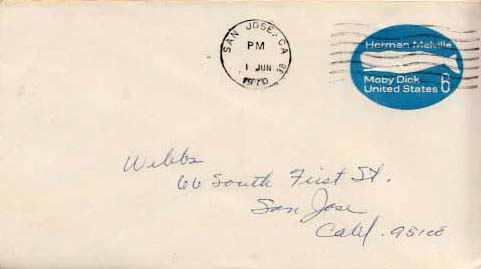 SAN JOSE, CA
PM
1 JUN
1970
Herman Melville
Moby Dick
United States 6
Webbs
66 South First St.
San Jose
Calif. 95108